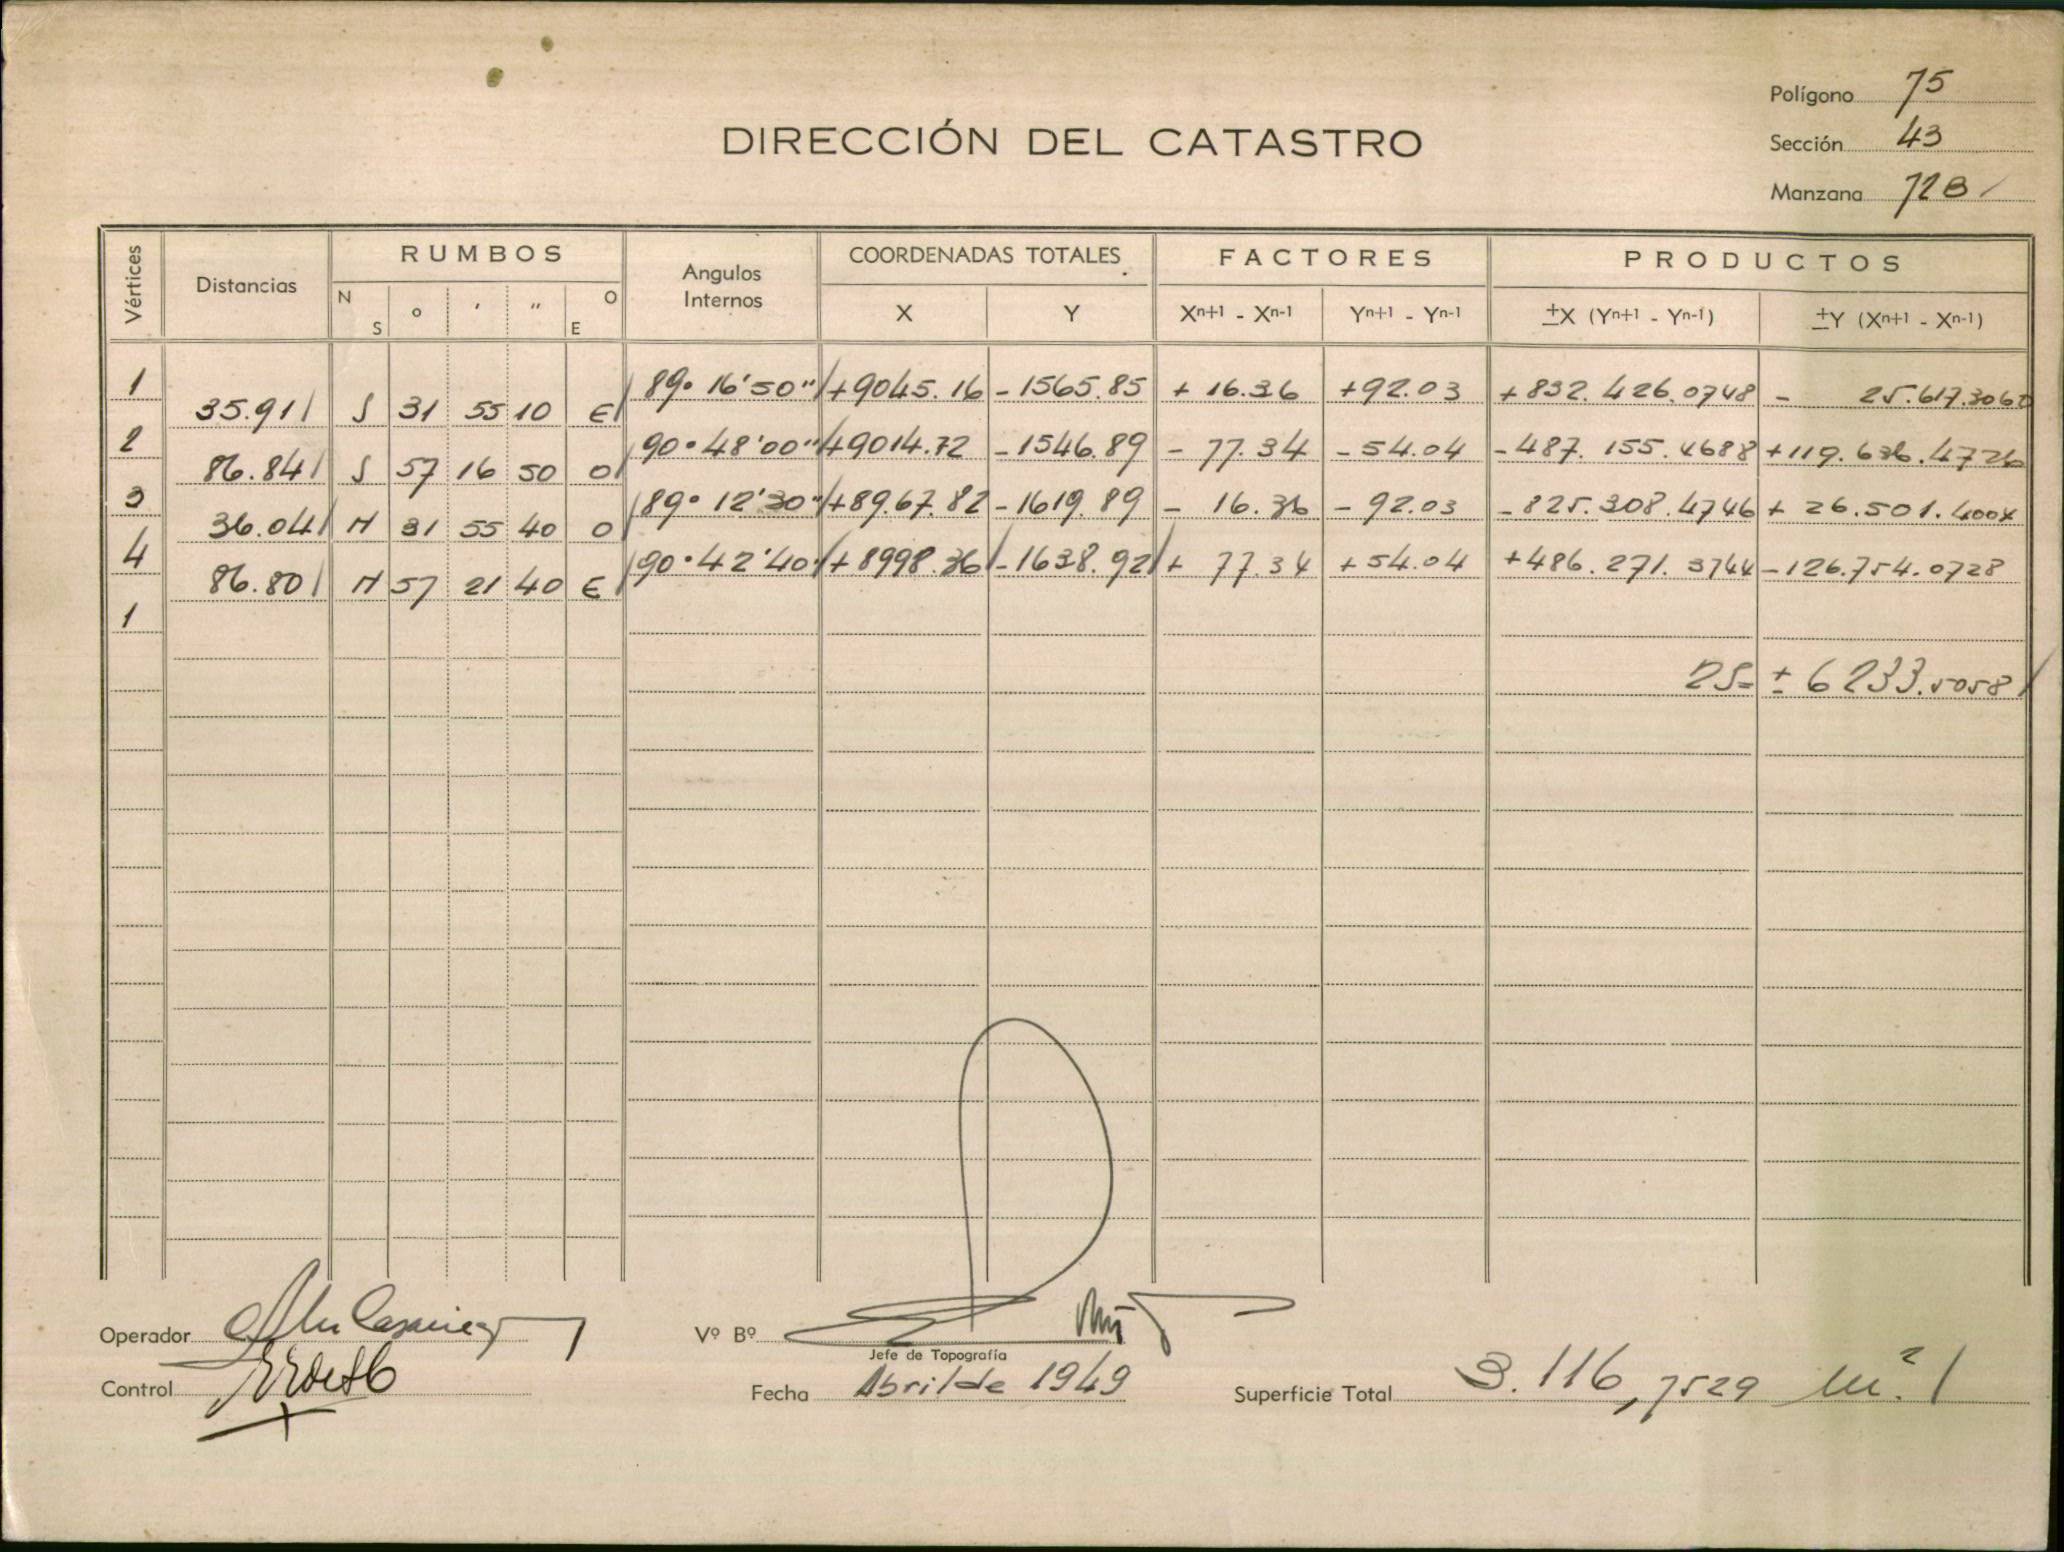 Polígono 75
DIRECCIÓN DEL CATASTRO
Sección 43
Manzana 72B
Vértices Distancias RUMBOS Angulos Internos COORDENADAS TOTALES FACTORES PRODUCTOS
N S ° ' " O E X Y Xn+1 - Xn-1 Yn+1 - Yn-1 ±X (Yn+1 - Yn-1) ±Y (Xn+1 - Xn-1)
1 89° 16' 50" +9045.16 -1565.85 + 16.36 +92.03 +832.426.0748 - 25.617.3060
35.91 S 31 55 10 E
2 90° 48' 00" +9014.72 -1546.89 - 77.34 -54.04 -487.155.4688 +119.636.4726
86.84 S 57 16 50 O
3 89° 12' 30" +89.67.82 -1619.89 - 16.36 -92.03 -825.308.4746 + 26.501.4004
36.04 N 31 55 40 O
4 90° 42' 40" +8998.36 -1638.92 + 77.34 +54.04 +486.271.3744 -126.754.0728
86.80 N 57 21 40 E
1
2S= ± 6233.5058
Operador
Vº Bº
Jefe de Topografía
Control
Fecha Abril de 1949
Superficie Total 3.116,7529 m².